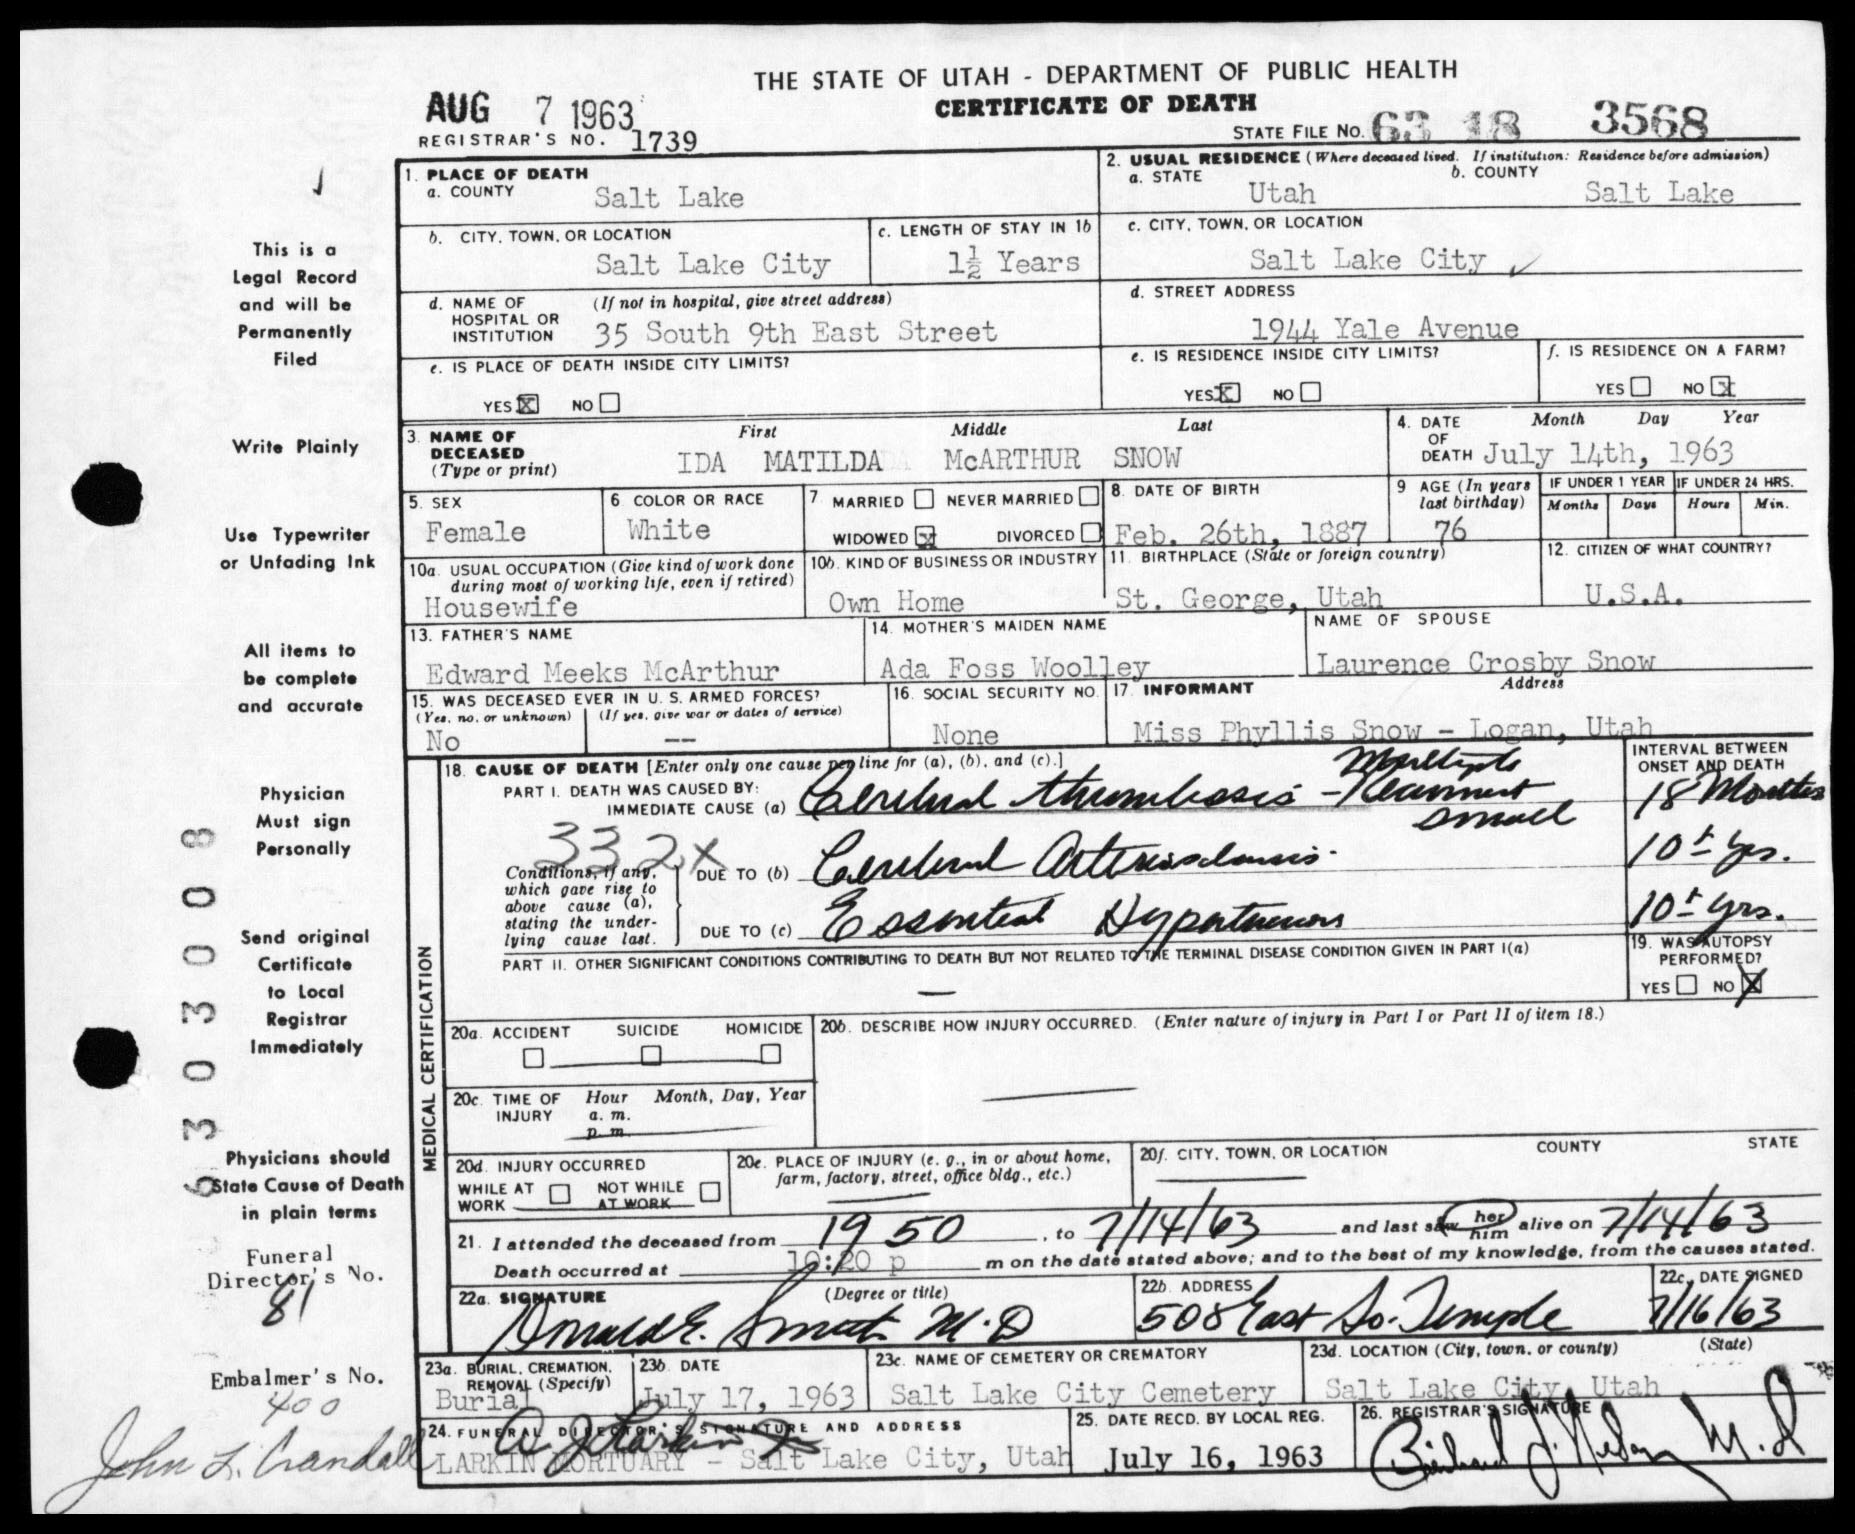 THE STATE OF UTAH - DEPARTMENT OF PUBLIC HEALTH
AUG 7 1963
CERTIFICATE OF DEATH
REGISTRAR'S NO. 1739
STATE FILE NO. 63 18 3568
1. PLACE OF DEATH
a. COUNTY Salt Lake
2. USUAL RESIDENCE (Where deceased lived. If institution: Residence before admission)
a. STATE Utah b. COUNTY Salt Lake
b. CITY, TOWN, OR LOCATION Salt Lake City
c. LENGTH OF STAY IN 1b 1½ Years
c. CITY, TOWN, OR LOCATION Salt Lake City
d. NAME OF HOSPITAL OR INSTITUTION (If not in hospital, give street address) 35 South 9th East Street
d. STREET ADDRESS 1944 Yale Avenue
e. IS PLACE OF DEATH INSIDE CITY LIMITS?
YES X NO
e. IS RESIDENCE INSIDE CITY LIMITS?
YES X NO
f. IS RESIDENCE ON A FARM?
YES NO X
3. NAME OF DECEASED (Type or print) First Middle Last
IDA MATILDA McARTHUR SNOW
4. DATE OF DEATH Month Day Year
July 14th, 1963
5. SEX Female
6 COLOR OR RACE White
7. MARRIED NEVER MARRIED
WIDOWED X DIVORCED
8. DATE OF BIRTH Feb. 26th, 1887
9 AGE (In years last birthday) 76
IF UNDER 1 YEAR Months Days
IF UNDER 24 HRS. Hours Min.
10a. USUAL OCCUPATION (Give kind of work done during most of working life, even if retired) Housewife
10b. KIND OF BUSINESS OR INDUSTRY Own Home
11. BIRTHPLACE (State or foreign country) St. George, Utah
12. CITIZEN OF WHAT COUNTRY? U.S.A.
13. FATHER'S NAME Edward Meeks McArthur
14. MOTHER'S MAIDEN NAME Ada Foss Woolley
NAME OF SPOUSE Laurence Crosby Snow
15. WAS DECEASED EVER IN U. S. ARMED FORCES?
(Yes, no, or unknown) (If yes, give war or dates of service)
No --
16. SOCIAL SECURITY NO. None
17. INFORMANT Address
Miss Phyllis Snow - Logan, Utah
MEDICAL CERTIFICATION
18. CAUSE OF DEATH [Enter only one cause per line for (a), (b), and (c).]
INTERVAL BETWEEN ONSET AND DEATH
PART I. DEATH WAS CAUSED BY:
IMMEDIATE CAUSE (a) Cerebral thrombosis - Multiple Recurrent small 18 Months
332X
Conditions, if any, which gave rise to above cause (a), stating the underlying cause last.
DUE TO (b) Cerebral Arteriosclerosis. 10± yrs.
DUE TO (c) Essential Hypertension 10± yrs.
PART II. OTHER SIGNIFICANT CONDITIONS CONTRIBUTING TO DEATH BUT NOT RELATED TO THE TERMINAL DISEASE CONDITION GIVEN IN PART I(a)
—
19. WAS AUTOPSY PERFORMED?
YES NO X
20a. ACCIDENT SUICIDE HOMICIDE
20b. DESCRIBE HOW INJURY OCCURRED. (Enter nature of injury in Part I or Part II of item 18.)
20c. TIME OF INJURY Hour Month, Day, Year
a. m.
p. m.
20d. INJURY OCCURRED
WHILE AT WORK NOT WHILE AT WORK
20e. PLACE OF INJURY (e. g., in or about home, farm, factory, street, office bldg., etc.)
20f. CITY, TOWN, OR LOCATION COUNTY STATE
21. I attended the deceased from 1950, to 7/14/63 and last saw her him alive on 7/14/63
Death occurred at 10:20 p m on the date stated above; and to the best of my knowledge, from the causes stated.
22a. SIGNATURE (Degree or title)
Donald E. Smith M.D
22b. ADDRESS 508 East So. Temple
22c. DATE SIGNED 7/16/63
23a. BURIAL, CREMATION, REMOVAL (Specify) Burial
23b. DATE July 17, 1963
23c. NAME OF CEMETERY OR CREMATORY Salt Lake City Cemetery
23d. LOCATION (City, town, or county) (State)
Salt Lake City, Utah
24. FUNERAL DIRECTOR'S SIGNATURE AND ADDRESS
A J Larkin Jr
LARKIN MORTUARY - Salt Lake City, Utah
25. DATE RECD. BY LOCAL REG. July 16, 1963
26. REGISTRAR'S SIGNATURE
M.D
This is a
Legal Record
and will be
Permanently
Filed
Write Plainly
Use Typewriter
or Unfading Ink
All items to
be complete
and accurate
Physician
Must sign
Personally
Send original
Certificate
to Local
Registrar
Immediately
Physicians should
State Cause of Death
in plain terms
Funeral
Director's No.
81
Embalmer's No.
400
John L. Crandall
6303008